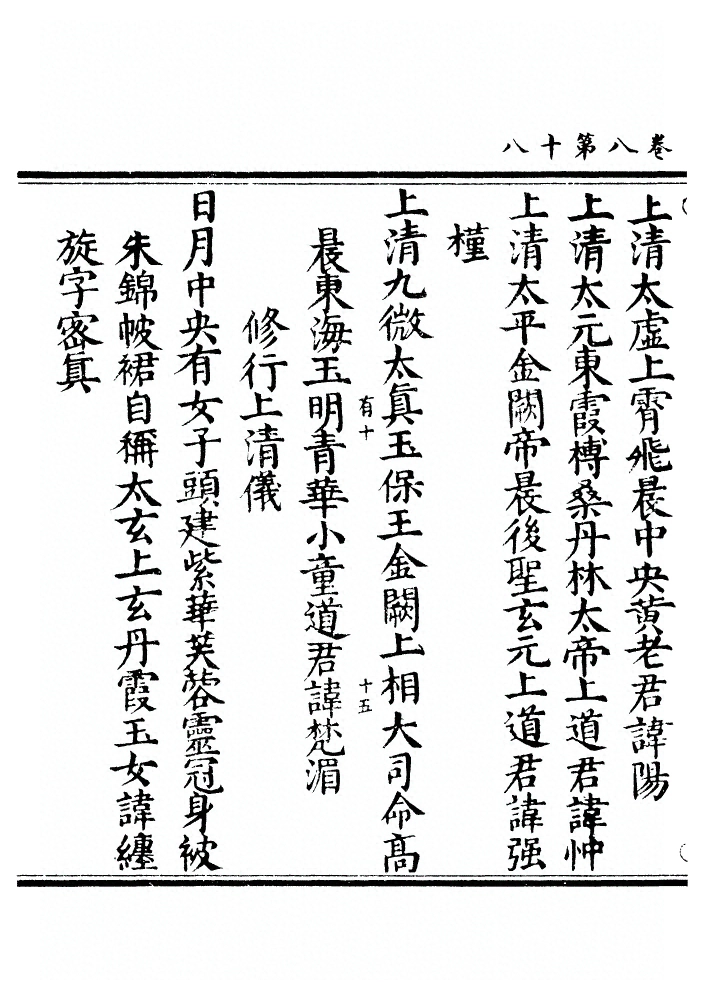 卷八第十八
上清太虛上霄飛晨中央黃老君諱陽
上清太元東霞榑桑丹林太帝上道君諱忡
上清太平金闕帝晨後聖玄元上道君諱强
槿
上清九微太眞玉保王金闕上相大司命高
晨東海玉明青華小童道君諱梵湄
有十
十五
修行上清儀
日月中央有女子頭建紫華芙蓉靈冠身被
朱錦帔裙自稱太玄上玄丹霞玉女諱纏
旋字密眞